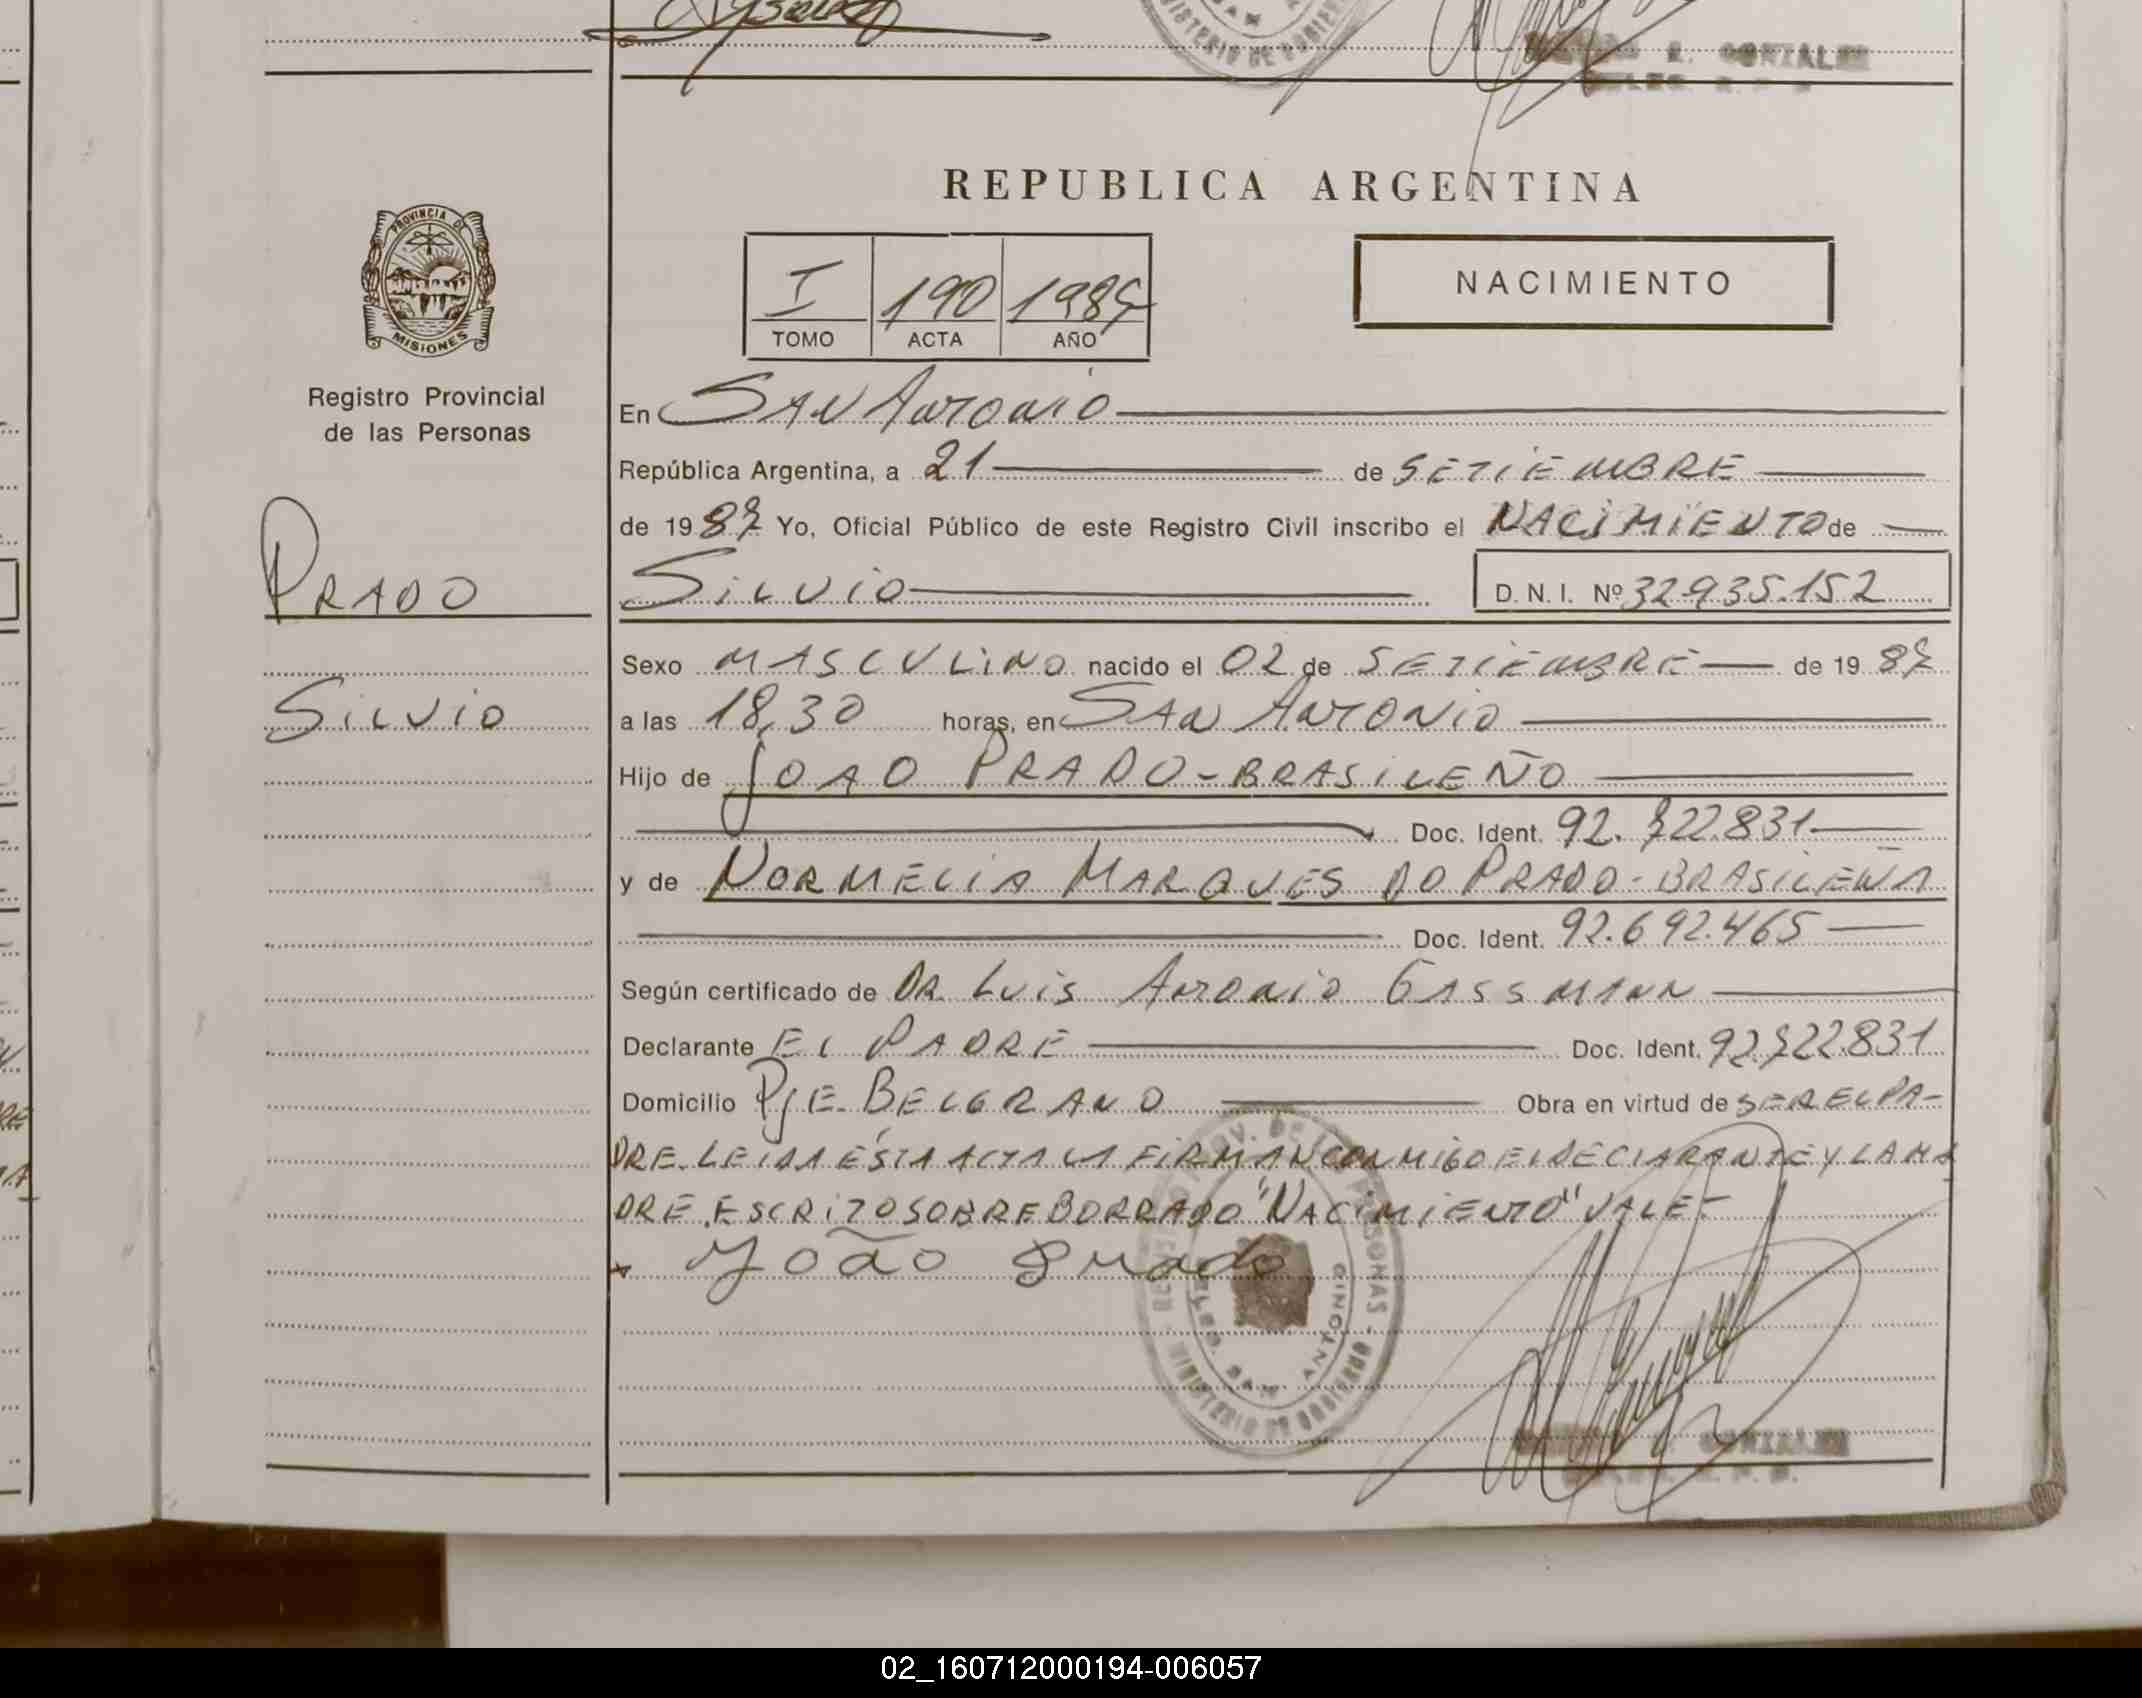 REPUBLICA ARGENTINA
PROVINCIA DE
MISIONES
Registro Provincial
de las Personas
I 190 1987
TOMO ACTA AÑO
NACIMIENTO
En SAN ANTONIO
República Argentina, a 21 de SETIEMBRE
de 1987 Yo, Oficial Público de este Registro Civil inscribo el NACIMIENTO de
PRADO
SILVIO
D. N. I. Nº 32.935.152
Sexo MASCULINO nacido el 02 de SETIEMBRE de 1987
SILVIO
a las 18,30 horas, en SAN ANTONIO
Hijo de JOAO PRADO - BRASILEÑO
Doc. Ident. 92.722.831
y de NORMELIA MARQUES DO PRADO - BRASILEÑA
Doc. Ident. 92.692.465
Según certificado de DR. LUIS ANTONIO GASSMANN
Declarante EL PADRE Doc. Ident. 92.722.831
Domicilio PJE. BELGRANO Obra en virtud de SER EL PA-
DRE. LEIDA ÉSTA ACTA LA FIRMAN CONMIGO EL DECLARANTE Y LA MA
DRE. ESCRITO SOBRE BORRADO "NACIMIENTO" VALE-
x João Prado
SAN ANTONIO
MINISTERIO DE GOBIERNO
GONZALEZ
02_160712000194-006057